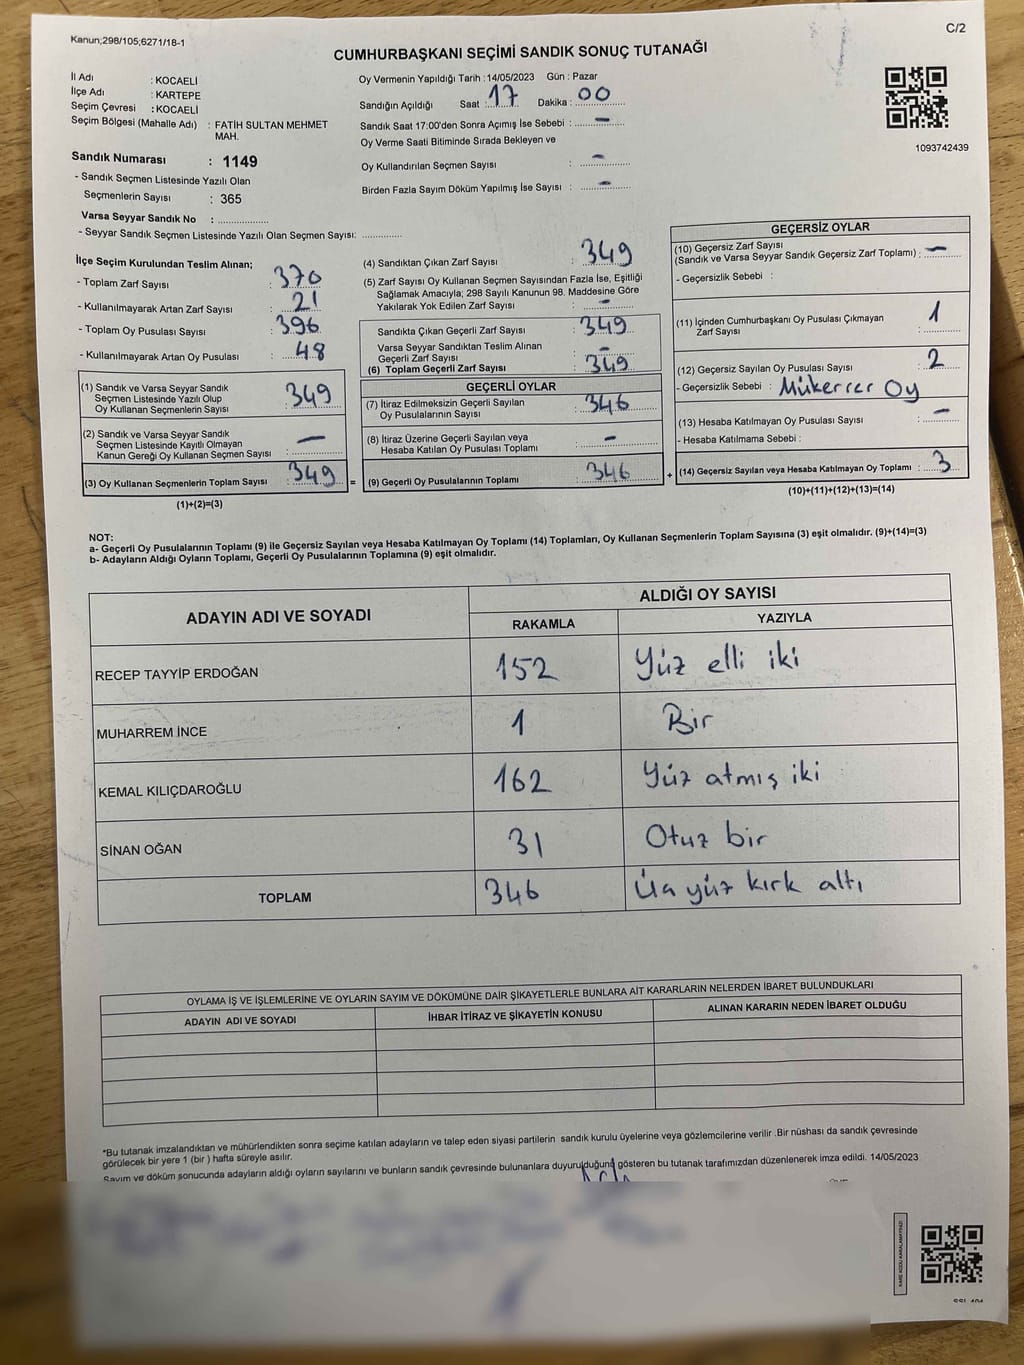 Kanun;298/105;6271/18-1
C/2
CUMHURBAŞKANI SEÇİMİ SANDIK SONUÇ TUTANAĞI
İl Adı : KOCAELİ
İlçe Adı : KARTEPE
Seçim Çevresi : KOCAELİ
Seçim Bölgesi (Mahalle Adı) : FATİH SULTAN MEHMET
MAH.
Sandık Numarası : 1149
- Sandık Seçmen Listesinde Yazılı Olan
Seçmenlerin Sayısı : 365
Varsa Seyyar Sandık No : ..................
- Seyyar Sandık Seçmen Listesinde Yazılı Olan Seçmen Sayısı: ..............
Oy Vermenin Yapıldığı Tarih :14/05/2023 Gün : Pazar
Sandığın Açıldığı Saat : 17 Dakika : 00
Sandık Saat 17:00'den Sonra Açımış İse Sebebi : –
Oy Verme Saati Bitiminde Sırada Bekleyen ve
Oy Kullandırılan Seçmen Sayısı : –
Birden Fazla Sayım Döküm Yapılmış İse Sayısı : –
1093742439
İlçe Seçim Kurulundan Teslim Alınan;
- Toplam Zarf Sayısı : 370
- Kullanılmayarak Artan Zarf Sayısı : 21
- Toplam Oy Pusulası Sayısı : 396
- Kullanılmayarak Artan Oy Pusulası : 48
(1) Sandık ve Varsa Seyyar Sandık
Seçmen Listesinde Yazılı Olup
Oy Kullanan Seçmenlerin Sayısı : 349
(2) Sandık ve Varsa Seyyar Sandık
Seçmen Listesinde Kayıtlı Olmayan
Kanun Gereği Oy Kullanan Seçmen Sayısı : –
(3) Oy Kullanan Seçmenlerin Toplam Sayısı : 349 =
(1)+(2)=(3)
(4) Sandıktan Çıkan Zarf Sayısı : 349
(5) Zarf Sayısı Oy Kullanan Seçmen Sayısından Fazla İse, Eşitliği
Sağlamak Amacıyla; 298 Sayılı Kanunun 98. Maddesine Göre
Yakılarak Yok Edilen Zarf Sayısı : –
Sandıkta Çıkan Geçerli Zarf Sayısı : 349
Varsa Seyyar Sandıktan Teslim Alınan
Geçerli Zarf Sayısı : –
(6) Toplam Geçerli Zarf Sayısı : 349
GEÇERLİ OYLAR
(7) İtiraz Edilmeksizin Geçerli Sayılan
Oy Pusulalarının Sayısı : 346
(8) İtiraz Üzerine Geçerli Sayılan veya
Hesaba Katılan Oy Pusulası Toplamı : –
(9) Geçerli Oy Pusulalarının Toplamı : 346 +
GEÇERSİZ OYLAR
(10) Geçersiz Zarf Sayısı
(Sandık ve Varsa Seyyar Sandık Geçersiz Zarf Toplamı) : –
- Geçersizlik Sebebi :
(11) İçinden Cumhurbaşkanı Oy Pusulası Çıkmayan
Zarf Sayısı : 1
(12) Geçersiz Sayılan Oy Pusulası Sayısı : 2
- Geçersizlik Sebebi : Mükerrer Oy
(13) Hesaba Katılmayan Oy Pusulası Sayısı : –
- Hesaba Katılmama Sebebi :
(14) Geçersiz Sayılan veya Hesaba Katılmayan Oy Toplamı : 3
(10)+(11)+(12)+(13)=(14)
NOT:
a- Geçerli Oy Pusulalarının Toplamı (9) ile Geçersiz Sayılan veya Hesaba Katılmayan Oy Toplamı (14) Toplamları, Oy Kullanan Seçmenlerin Toplam Sayısına (3) eşit olmalıdır. (9)+(14)=(3)
b- Adayların Aldığı Oyların Toplamı, Geçerli Oy Pusulalarının Toplamına (9) eşit olmalıdır.
ADAYIN ADI VE SOYADI
ALDIĞI OY SAYISI
RAKAMLA YAZIYLA
RECEP TAYYİP ERDOĞAN 152 Yüz elli iki
MUHARREM İNCE 1 Bir
KEMAL KILIÇDAROĞLU 162 Yüz atmış iki
SİNAN OĞAN 31 Otuz bir
TOPLAM 346 Üç yüz kırk altı
OYLAMA İŞ VE İŞLEMLERİNE VE OYLARIN SAYIM VE DÖKÜMÜNE DAİR ŞİKAYETLERLE BUNLARA AİT KARARLARIN NELERDEN İBARET BULUNDUKLARI
ADAYIN ADI VE SOYADI İHBAR İTİRAZ VE ŞİKAYETİN KONUSU ALINAN KARARIN NEDEN İBARET OLDUĞU
*Bu tutanak imzalandıktan ve mühürlendikten sonra seçime katılan adayların ve talep eden siyasi partilerin sandık kurulu üyelerine veya gözlemcilerine verilir .Bir nüshası da sandık çevresinde
görülecek bir yere 1 (bir ) hafta süreyle asılır.
Sayım ve döküm sonucunda adayların aldığı oyların sayılarını ve bunların sandık çevresinde bulunanlara duyurulduğunu gösteren bu tutanak tarafımızdan düzenlenerek imza edildi. 14/05/2023